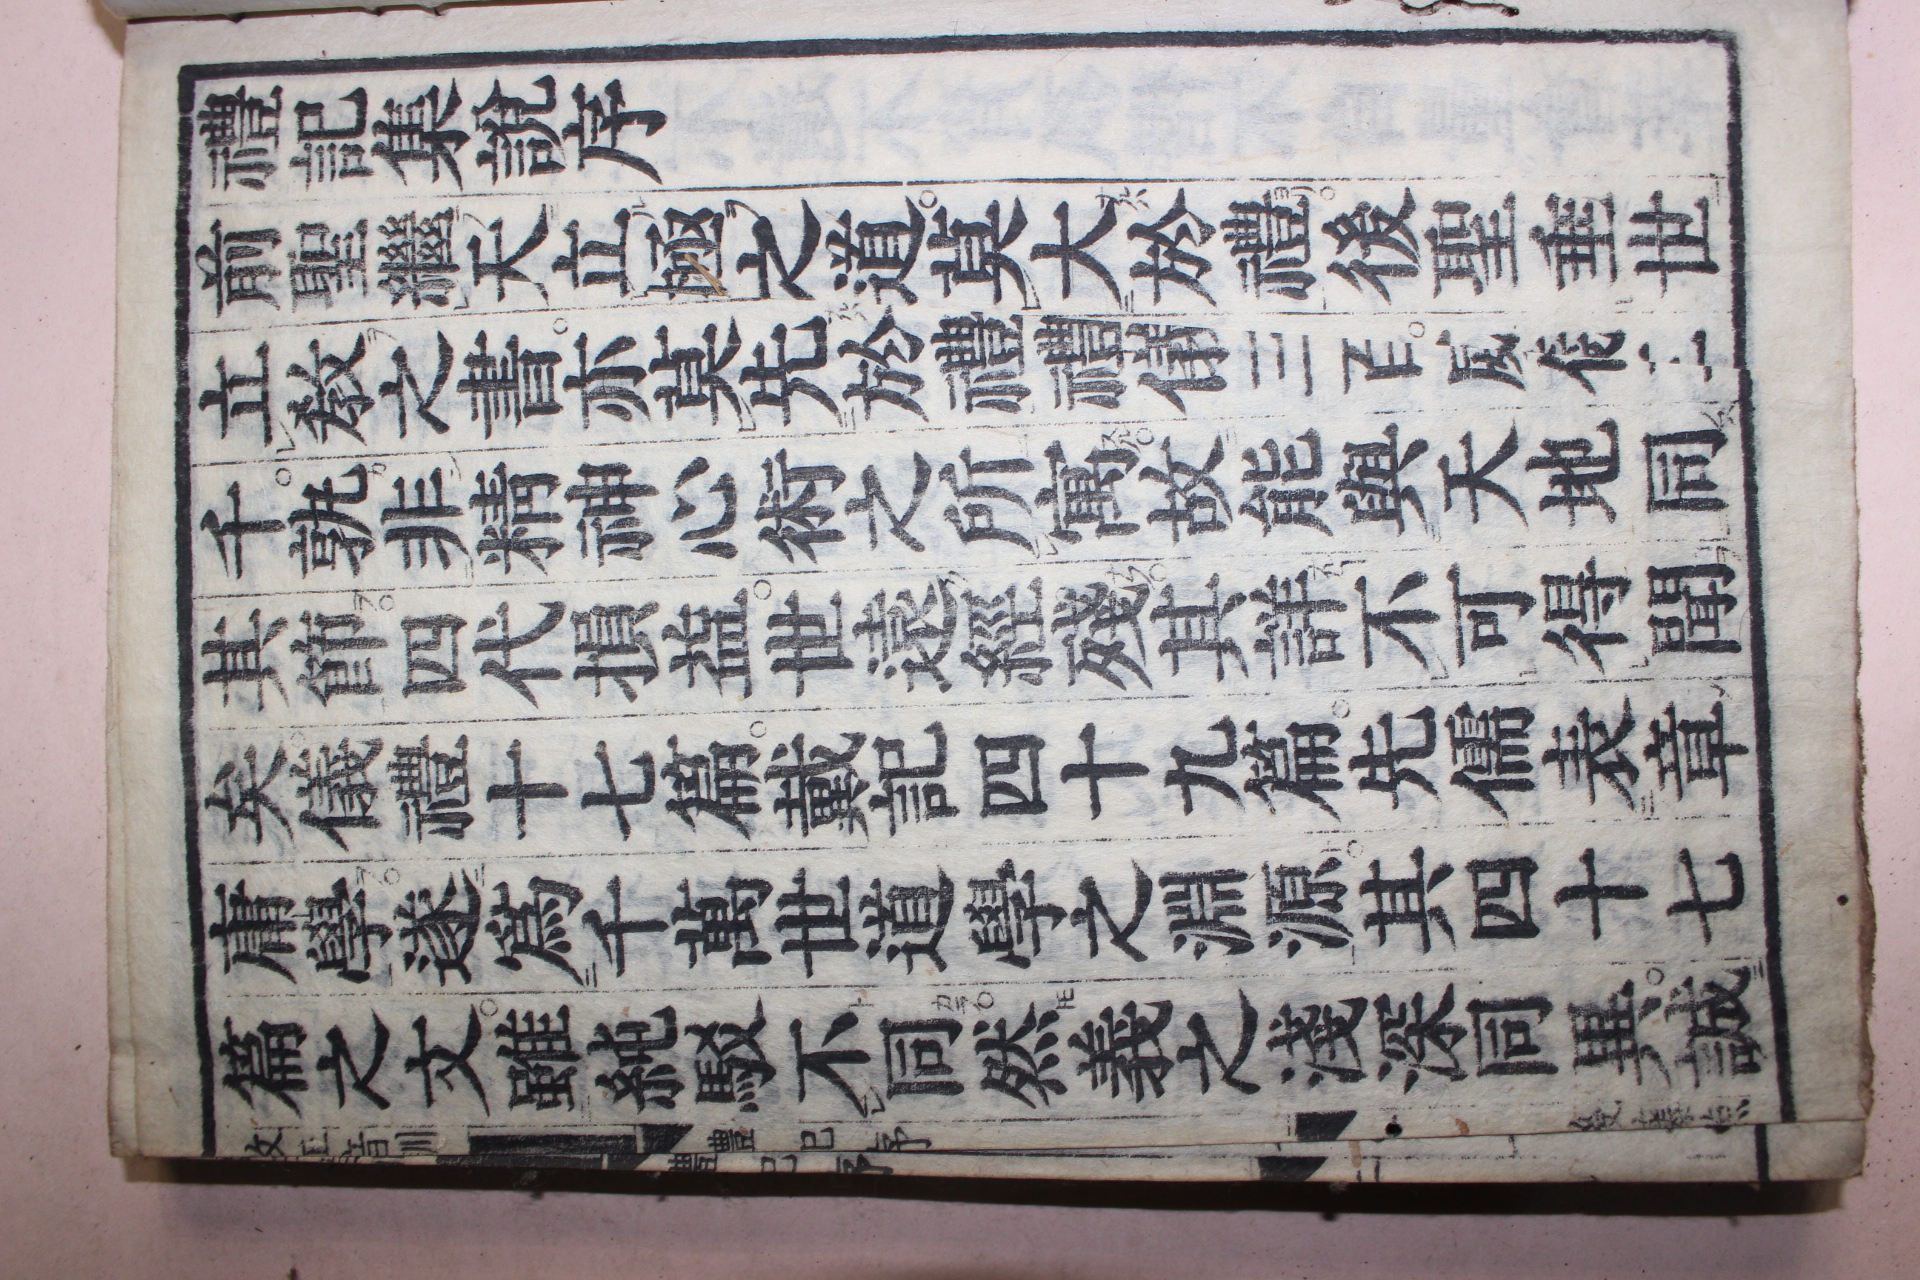 禮記集說序
前聖繼天立極之道莫大於禮後聖垂世
立教之書亦莫先於禮禮儀三百威儀三
千孰非精神心術之所寓故能與天地同
其節四代損益世遠經殘其詳不可得聞
矣儀禮十七篇戴記四十九篇先儒表章
庸學遂爲千萬世道學之淵源其四十七
篇之文雖純駁不同然義之淺深同異誠
禮記序
改正音訓
禮記序